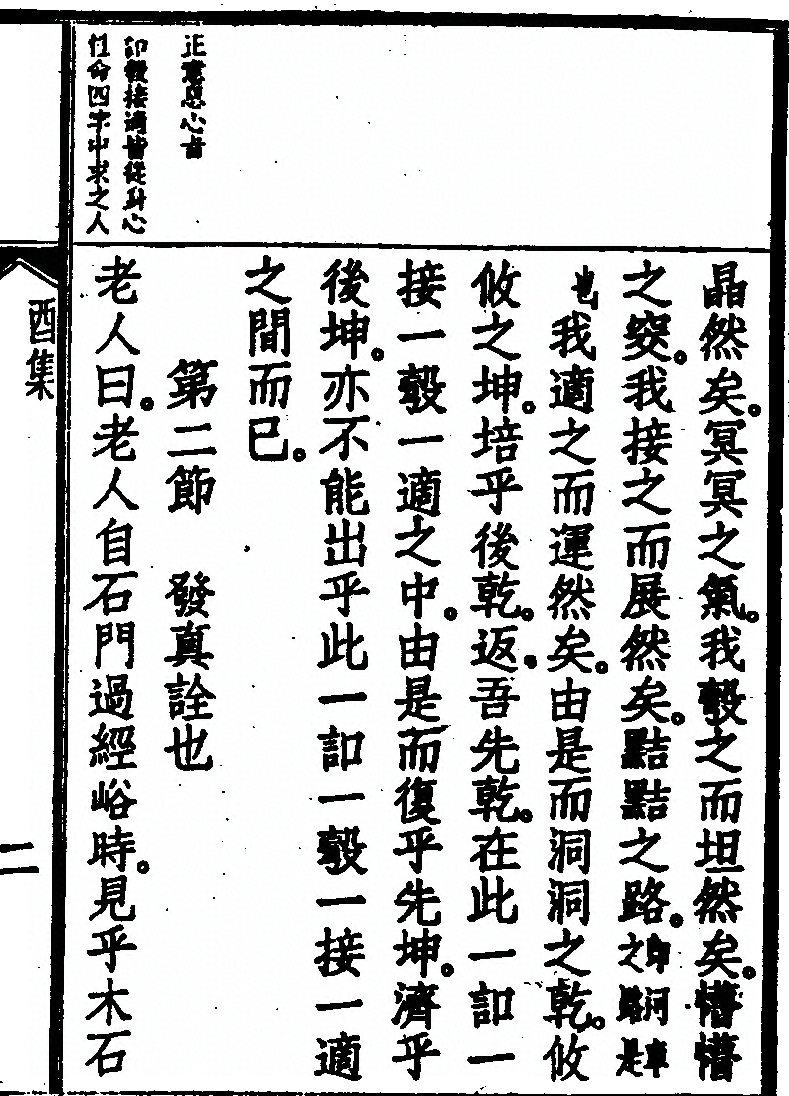 正意息心者
彀接適皆從身心
性命四字中求之人
晶然矣。冥冥之氣。我彀之而坦然矣。懵懵
之窔。我接之而展然矣。黠黠之路。卽河車之路是
也我適之而運然矣。由是而洞洞之乾。攸
攸之坤。培乎後乾。返。吾先乾。在此一一
接一彀一適之中。由是而復乎先坤。濟乎
後坤。亦不能出乎此一一彀一接一適
之間而已。
第二節　發真詮也
老人曰。老人自石門過經峪時。見乎木石
酉集
二